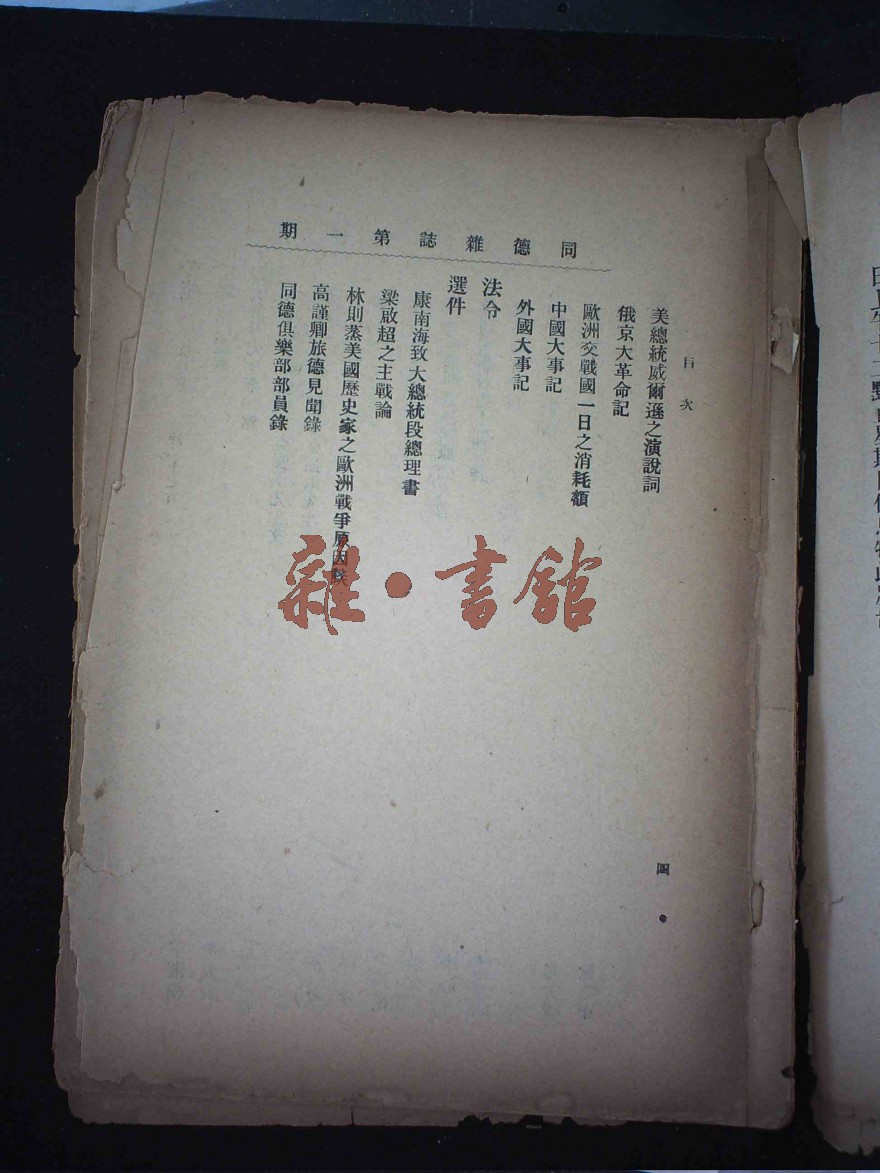 同德雜誌第一期
目次
美總統威爾遜之演說詞
俄京大革命記
歐洲交戰國一日之消耗額
中國大事記
外國大事記
法令
選件
康南海致大總統段總理書
梁啟超之主戰論
林則蒸美國歷史家之歐洲戰爭原因談
高謹卿旅德見聞錄
同德俱樂部部員錄
四
雜·書館